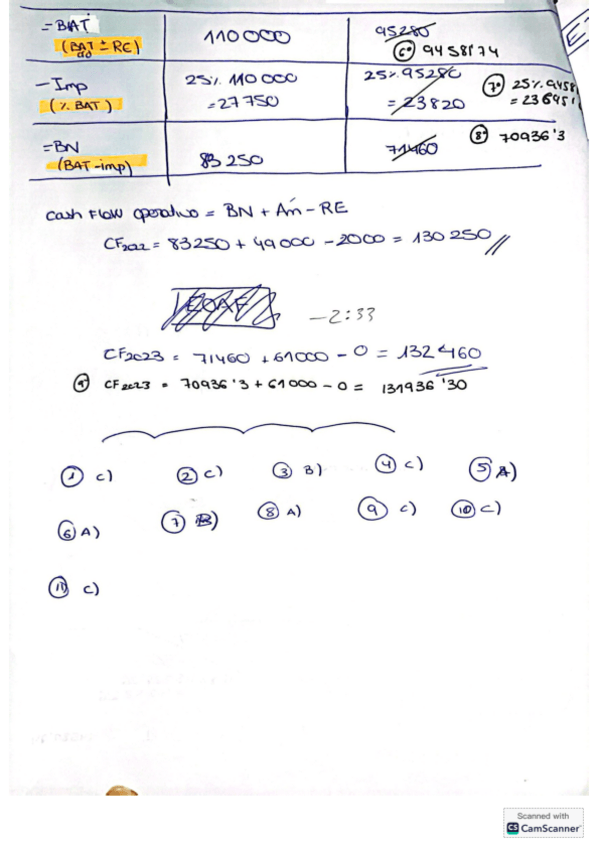 = BAT 110 000 95280
(BAT ± RE) ⑥ 94581'74
do
- Imp 25% 110 000 25% 95280 ⑦ 25% 9458
(% BAT) = 27750 = 23820 = 23645'1
= BN 83 250 71460 ⑧ 70936'3
(BAT - imp)
Cash Flow operativo = BN + Am - RE
CF2022 = 83250 + 49000 - 2000 = 130 250 //
EOAF
- 2:33
CF2023 = 71460 + 61000 - 0 = 132 460
⑨ CF2023 = 70936'3 + 61000 - 0 = 131936'30
① c) ② c) ③ B) ④ c) ⑤ A)
⑥ A) ⑦ B) ⑧ A) ⑨ c) ⑩ c)
⑪ c)
Scanned with
CS CamScanner